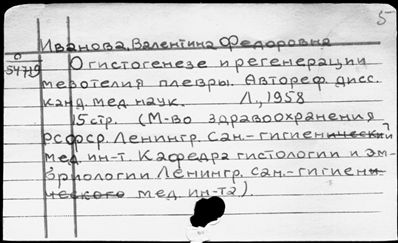 5
Иванова, Валентина Федоровна
О
54719
О гистогенезе и регенерации
мезотелия плевры. Автореф. дисс.
канд. мед. наук. Л., 1958
15 стр. (М-во здравоохранения
РСФСР. Ленингр. сан.-гигиенический
мед. ин-т. Кафедра гистологии и эм-
бриологии Ленингр. сан.-гигиени-
ческого мед. ин-та).